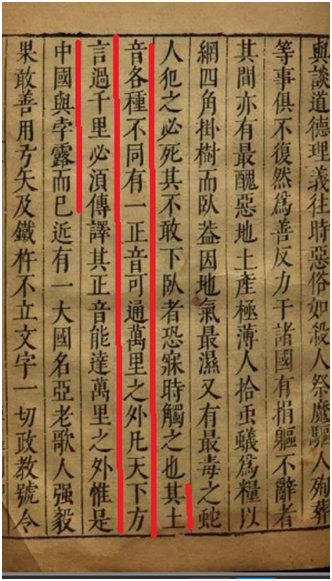 與談道德理義徃時惡俗如殺人祭魔驅人殉葬
等事俱不復然爲善反力于諸國有捐軀不辭者
其間亦有最醜惡地土產極薄人拾虫蟻爲糧以
網四角掛樹而臥葢因地氣最濕又有最毒之蛇
人犯之必死其不敢下臥者恐寐時觸之也其土
音各種不同有一正音可通萬里之外凡天下方
言過千里必湏傳譯其正音能達萬里之外惟是
中國與孛露而巳近有一大國名亞老歌人强毅
果敢善用弓矢及鐵杵不立文字一切政教號令